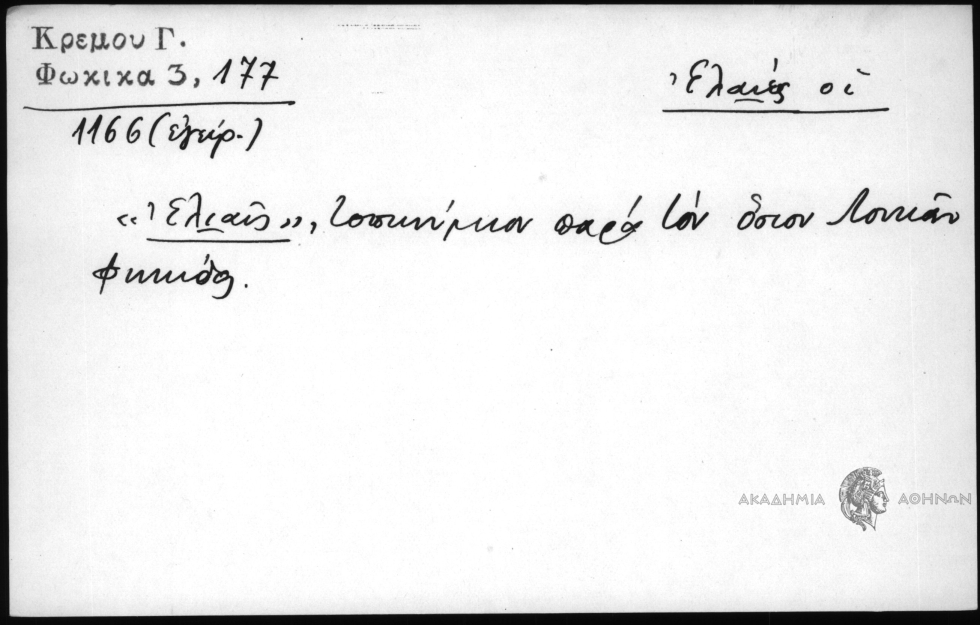 Κρεμου Γ.
Φωκικα 3, 177
1166 (ἐγείρ.)
Ἐλαιές οἱ
«Ἐλιαῖς», τοπωνύμιον παρά τόν ὅσιον Λουκᾶν
Φωκίδος.
ΑΚΑΔΗΜΙΑ ΑΘΗΝΩΝ